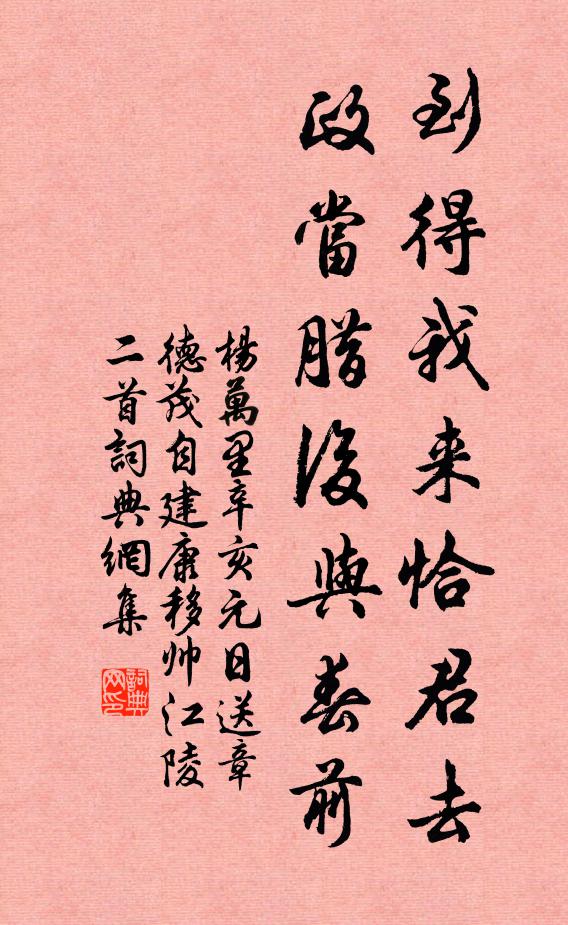 到得我来恰君去
政當腊後與春前
楊萬里辛亥元日送章
德茂自建康移帅江陵
二首詞典網集
詞典
网印